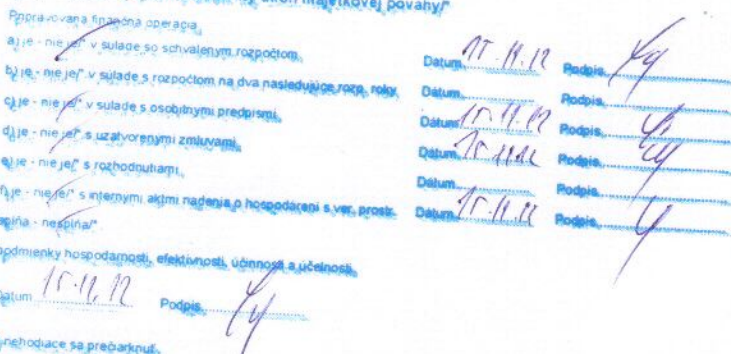 úkon majetkovej povahy/*
Pripravovaná finančná operácia
a) je - nie je/* v súlade so schváleným rozpočtom Dátum 15.11.12 Podpis
b) je - nie je/* v súlade s rozpočtom na dva nasledujúce rozp. roky Dátum Podpis
c) je - nie je/* v súlade s osobitnými predpismi Dátum 15.11.12 Podpis
d) je - nie je/* s uzatvorenými zmluvami Dátum 15.11.12 Podpis
e) je - nie je/* s rozhodnutiami Dátum Podpis
f) je - nie je/* s internými aktmi riadenia o hospodárení s ver. prostr. Dátum 15.11.12 Podpis
spĺňa - nespĺňa/*
podmienky hospodárnosti, efektívnosti, účinnosti a účelnosti
Dátum 15.11.12 Podpis
nehodiace sa prečiarknuť